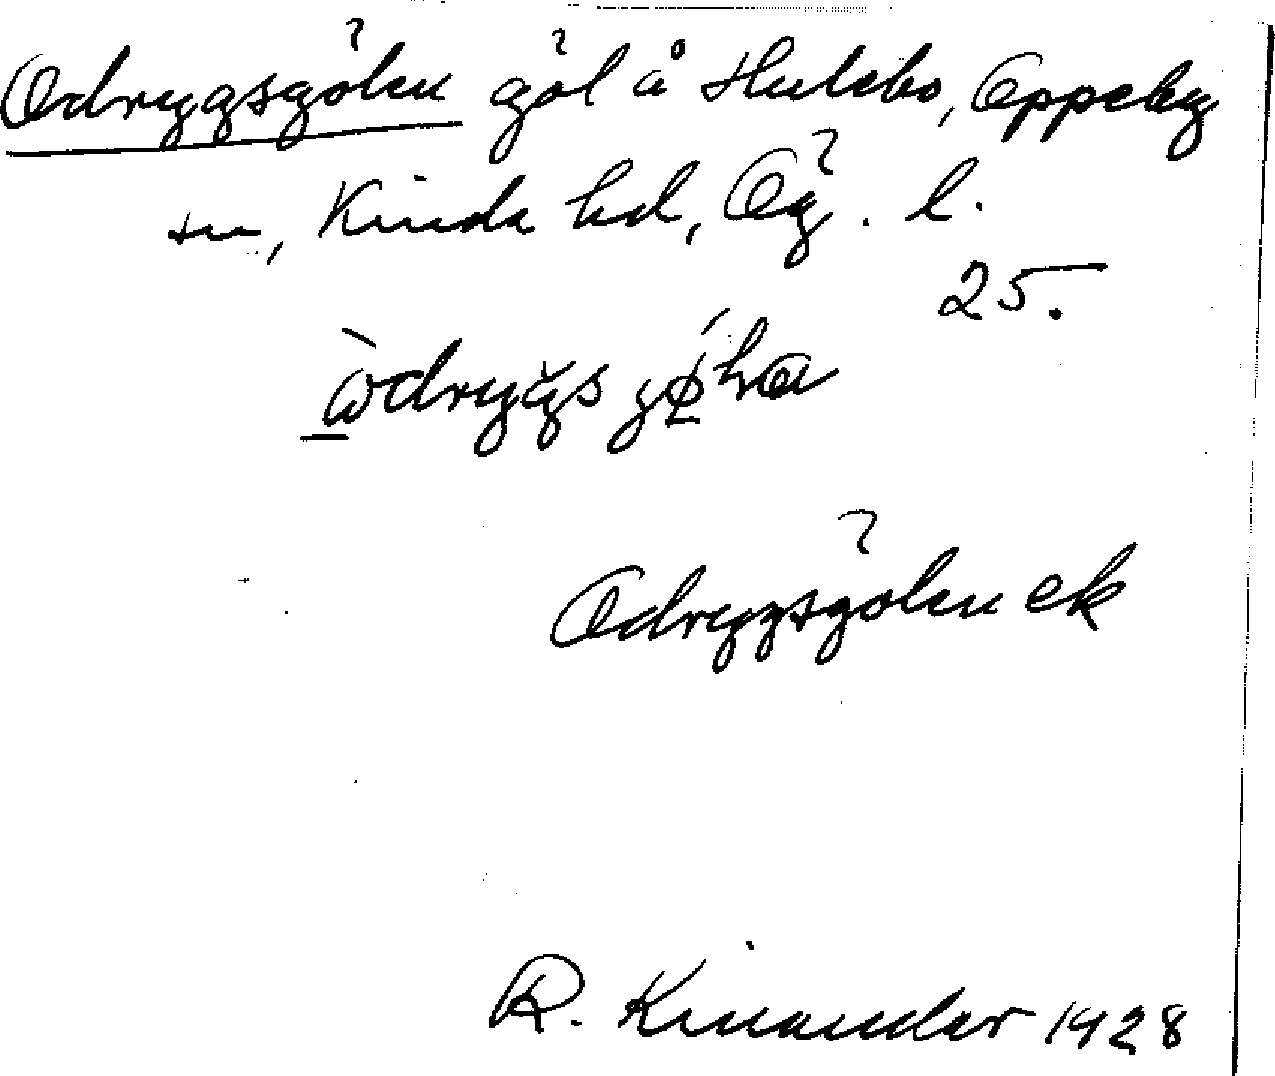 Odryggsgölen göl å Hulebo, Oppeby
sn, Kinda hd, Ög. l.
25.
Odryggsgölen ek
R. Kinander 1928